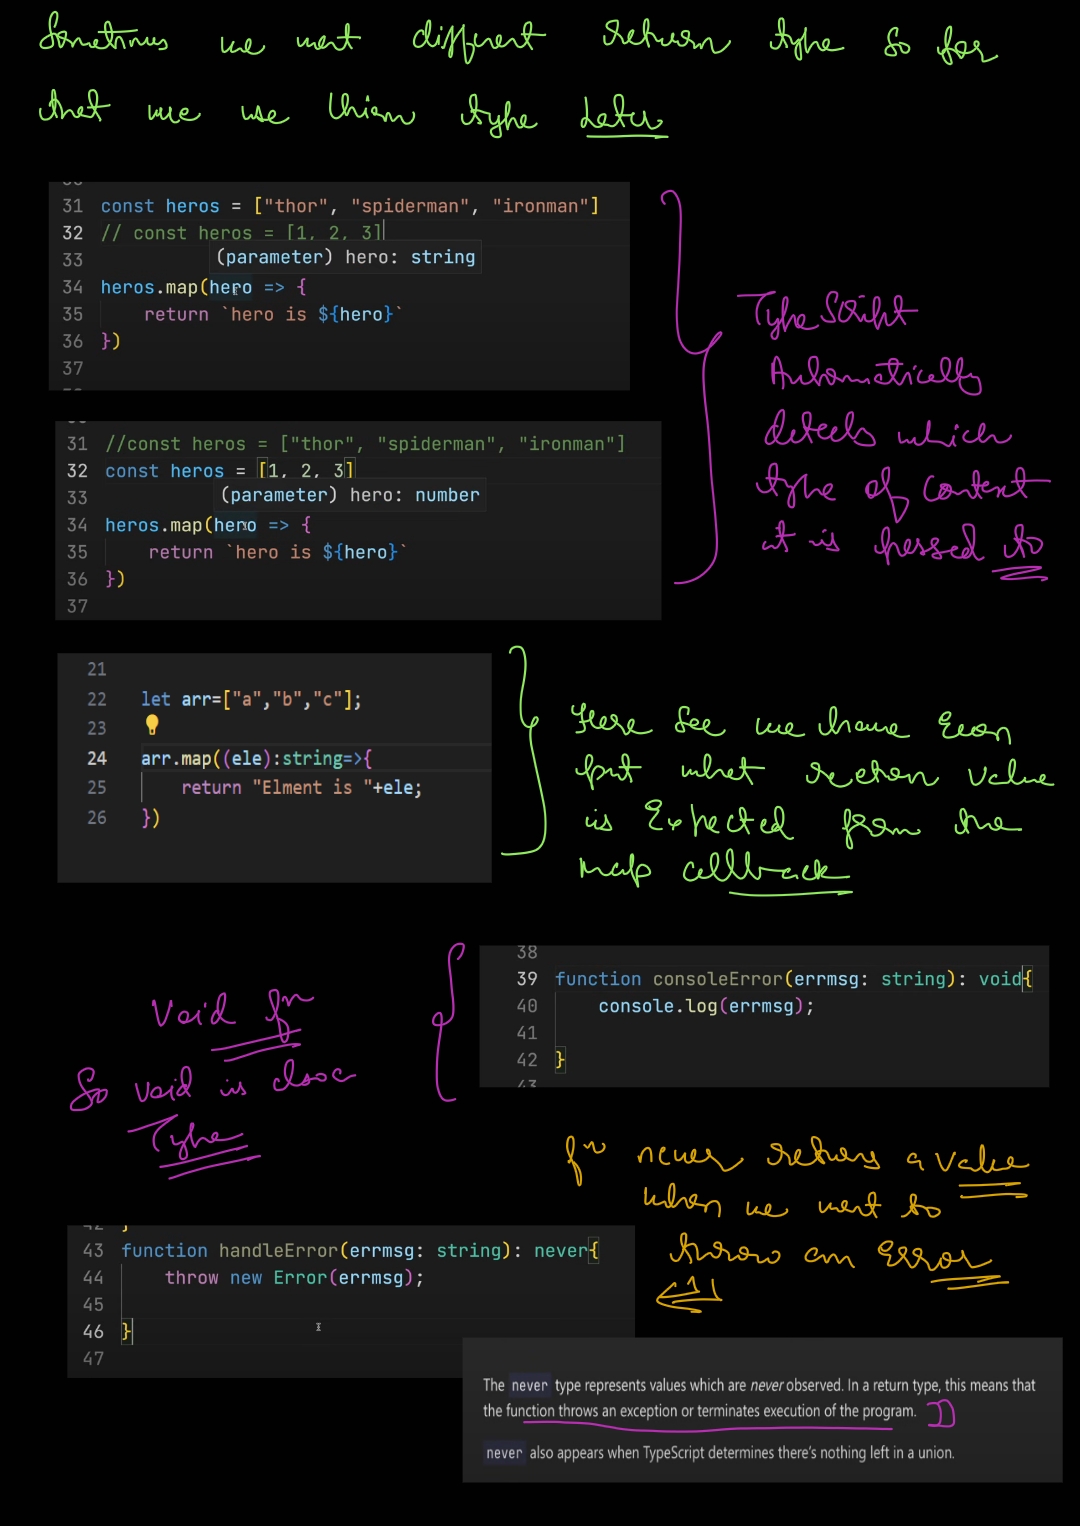 Sometimes we want different return type so for
that we use Union type later
31 const heros = ["thor", "spiderman", "ironman"]
32 // const heros = [1, 2, 3]
33 (parameter) hero: string
34 heros.map(hero => {
35 return `hero is ${hero}`
36 })
37
TypeScript
Automatically
detects which
type of context
it is passed to
31 //const heros = ["thor", "spiderman", "ironman"]
32 const heros = [1, 2, 3]
33 (parameter) hero: number
34 heros.map(hero => {
35 return `hero is ${hero}`
36 })
37
21
22 let arr=["a","b","c"];
23
24 arr.map((ele):string=>{
25 return "Elment is "+ele;
26 })
Here See we have Even
put what return value
is Expected from the
map callback
Void fn
So void is also a
Type
38
39 function consoleError(errmsg: string): void{
40 console.log(errmsg);
41
42 }
43
fn never returns a value
when we want to
throw an Error
42 }
43 function handleError(errmsg: string): never{
44 throw new Error(errmsg);
45
46 }
47
The never type represents values which are never observed. In a return type, this means that
the function throws an exception or terminates execution of the program.
never also appears when TypeScript determines there's nothing left in a union.